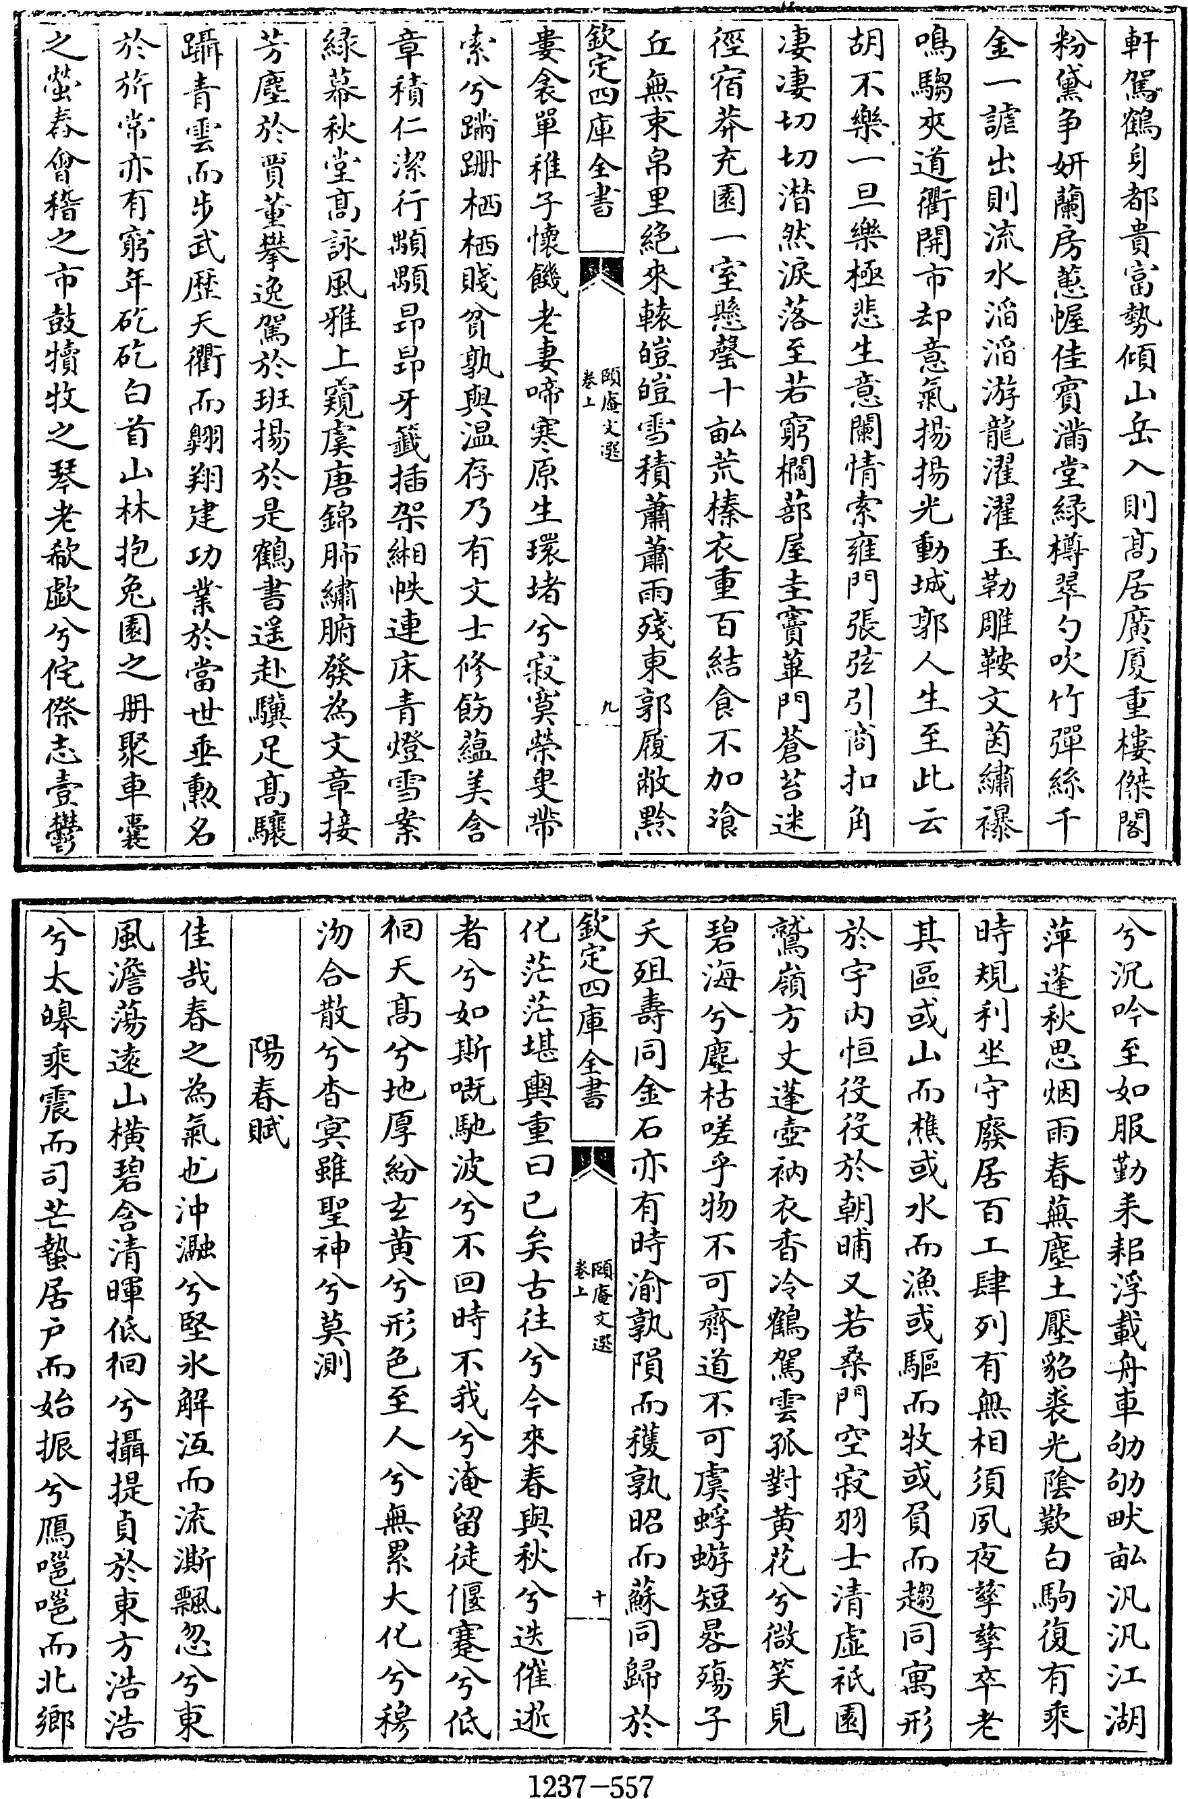 軒駕鶴身都貴富勢傾山岳入則髙居廣厦重樓傑閣
粉黛争妍蘭房蕙幄佳賓滿堂緑樽翠勺吹竹彈絲千
金一謔出則流水滔滔游龍濯濯玉勒雕鞍文茵繡襮
鳴騶夾道衢開市却意氣揚揚光動城郭人生至此云
胡不樂一旦樂極悲生意闌情索雍門張弦引商扣角
凄凄切切潸然淚落至若窮櫩蔀屋圭竇蓽門蒼苔迷
徑宿莽充園一室懸罄十畝荒榛衣重百結食不加飡
丘無束帛里絶來轅皚皚雪積蕭蕭雨殘東郭履敝黔
欽定四庫全書
頤庵文選
卷上
九
婁衾單稚子懷饑老妻啼寒原生環堵兮寂寞榮叟帶
索兮蹣跚栖栖賤貧孰與温存乃有文士修飭藴美含
章積仁潔行顒顒昂昂牙籤插架緗帙連床青燈雪案
緑幕秋堂髙詠風雅上窺虞唐錦肺繡腑發為文章接
芳塵於賈董攀逸駕於班揚於是鶴書遥赴驥足髙驤
躡青雲而步武歴天衢而翺翔建功業於當世垂勲名
於旂常亦有窮年矻矻白首山林抱兔園之册聚車囊
之螢舂會稽之市鼓犢牧之琴老欷歔兮侘傺志壹鬱
兮沉吟至如服勤耒耜浮載舟車劬劬畎畝汎汎江湖
萍蓬秋思烟雨春蕪塵土壓貂裘光陰歎白駒復有乘
時規利坐守廢居百工肆列有無相須夙夜孳孳卒老
其區或山而樵或水而漁或驅而牧或負而趨同寓形
於宇内恒役役於朝晡又若桑門空寂羽士清虚祇園
鷲嶺方丈蓬壺衲衣香冷鶴駕雲孤對黄花兮微笑見
碧海兮塵枯嗟乎物不可齊道不可虞蜉蝣短晷殤子
夭殂壽同金石亦有時渝孰隕而穫孰昭而蘇同歸於
欽定四庫全書
頤庵文選
卷上
十
化茫茫堪輿重曰已矣古往兮今來春與秋兮迭催逝
者兮如斯嘅馳波兮不回時不我兮淹留徒偃蹇兮低
徊天髙兮地厚紛玄黄兮形色至人兮無累大化兮穆
沕合散兮杳冥雖聖神兮莫測
陽春賦
佳哉春之為氣也沖瀜兮堅氷解沍而流澌飄忽兮東
風澹蕩逺山横碧含清暉低徊兮攝提貞於東方浩浩
兮太皥乘震而司芒蟄居户而始振兮鴈嗈嗈而北鄉
1237-557